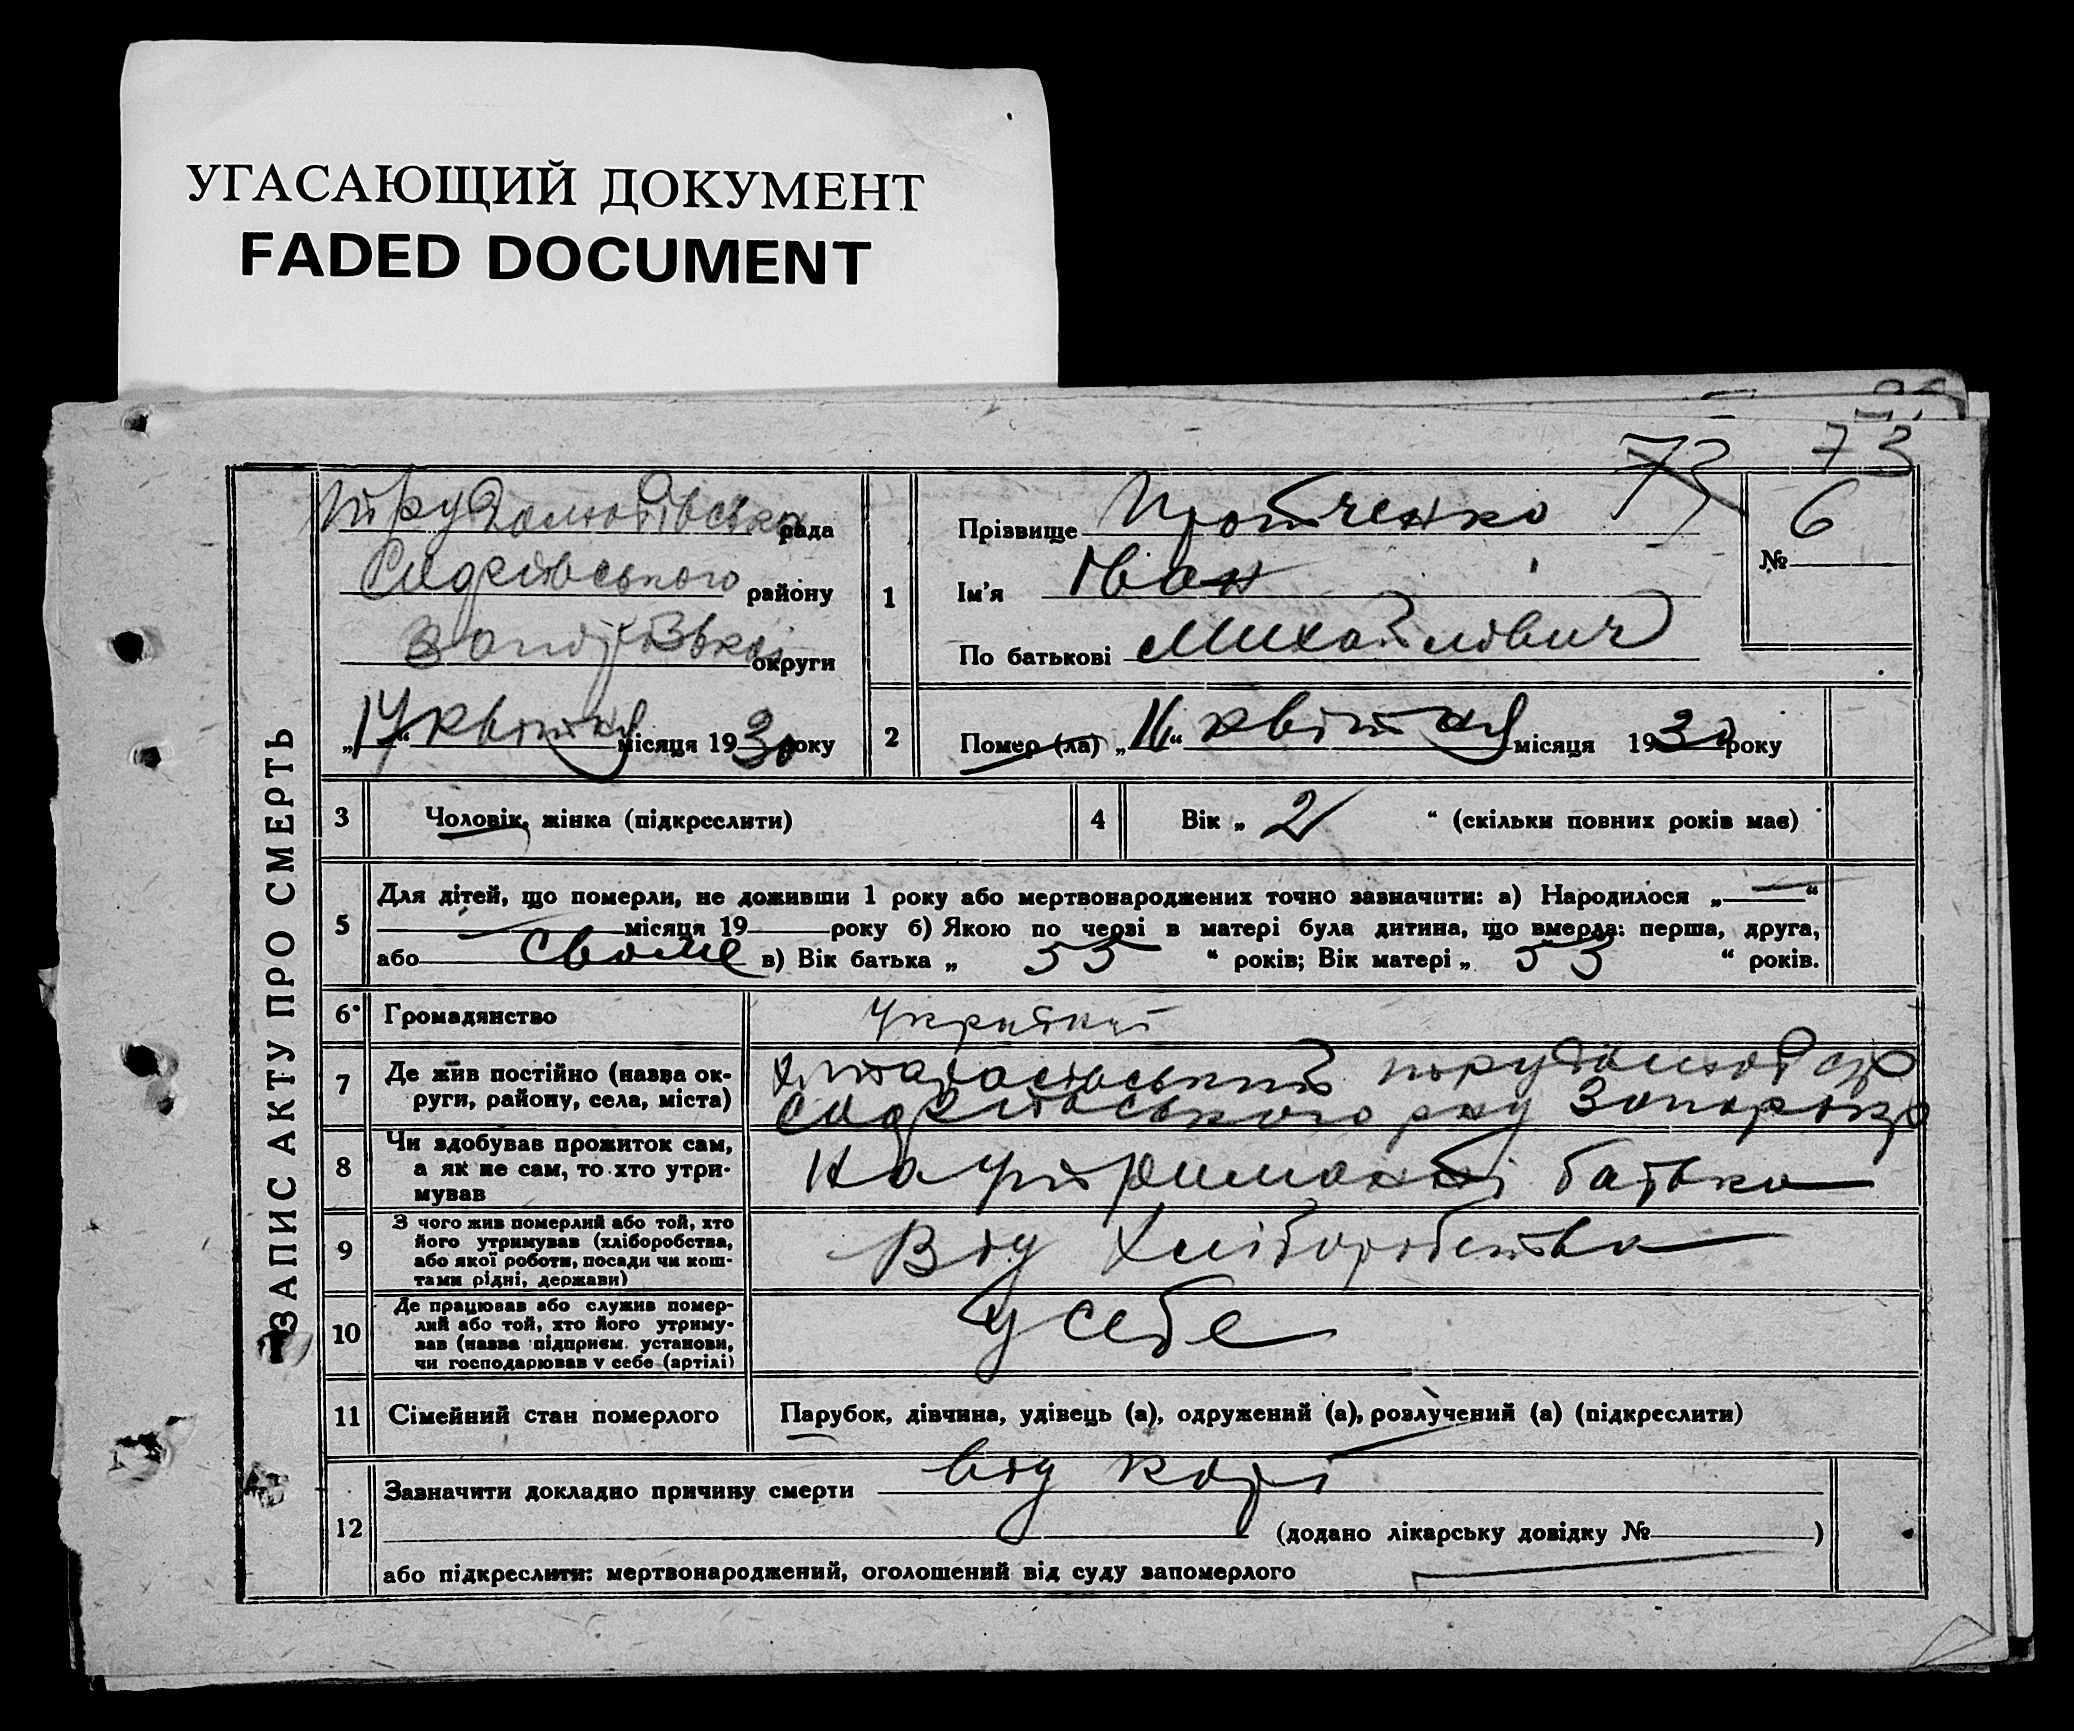 УГАСАЮЩИЙ ДОКУМЕНТ
FADED DOCUMENT
73
73
ЗАПИС АКТУ ПРО СМЕРТЬ
Трудолюбівська рада
району
округи
„17“ квітня місяця 1930 року
1
Прізвище Протченко
Ім'я Іван
По батькові Михайлович
№ 6
2
Помер (ла) „16“ квітня місяця 1930 року
3
Чоловік, жінка (підкреслити)
4
Вік „ 2 “ (скільки повних років має)
5
Для дітей, що померли, не доживши 1 року або мертвонароджених точно зазначити: а) Народилося „ “
місяця 19 року б) Якою по черзі в матері була дитина, що вмерла: перша, друга,
або в) Вік батька „ 55 “ років; Вік матері „ 53 “ років.
6
Громадянство
7
Де жив постійно (назва ок-
руги, району, села, міста)
8
Чи здобував прожиток сам,
а як не сам, то хто утри-
мував
На утриманні батька
9
З чого жив померлий або той, хто
його утримував (хліборобства,
або якої роботи, посади чи кош-
тами рідні, держави)
Від хліборобства
10
Де працював або служив помер-
лий або той, хто його утриму-
вав (назва підприєм. установи,
чи господарював у себе (артілі)
У себе
11
Сімейний стан померлого
Парубок, дівчина, удівець (а), одружений (а), розлучений (а) (підкреслити)
12
Зазначити докладно причину смерти від корі
(додано лікарську довідку № )
або підкреслити: мертвонароджений, оголошений від суду запомерлого